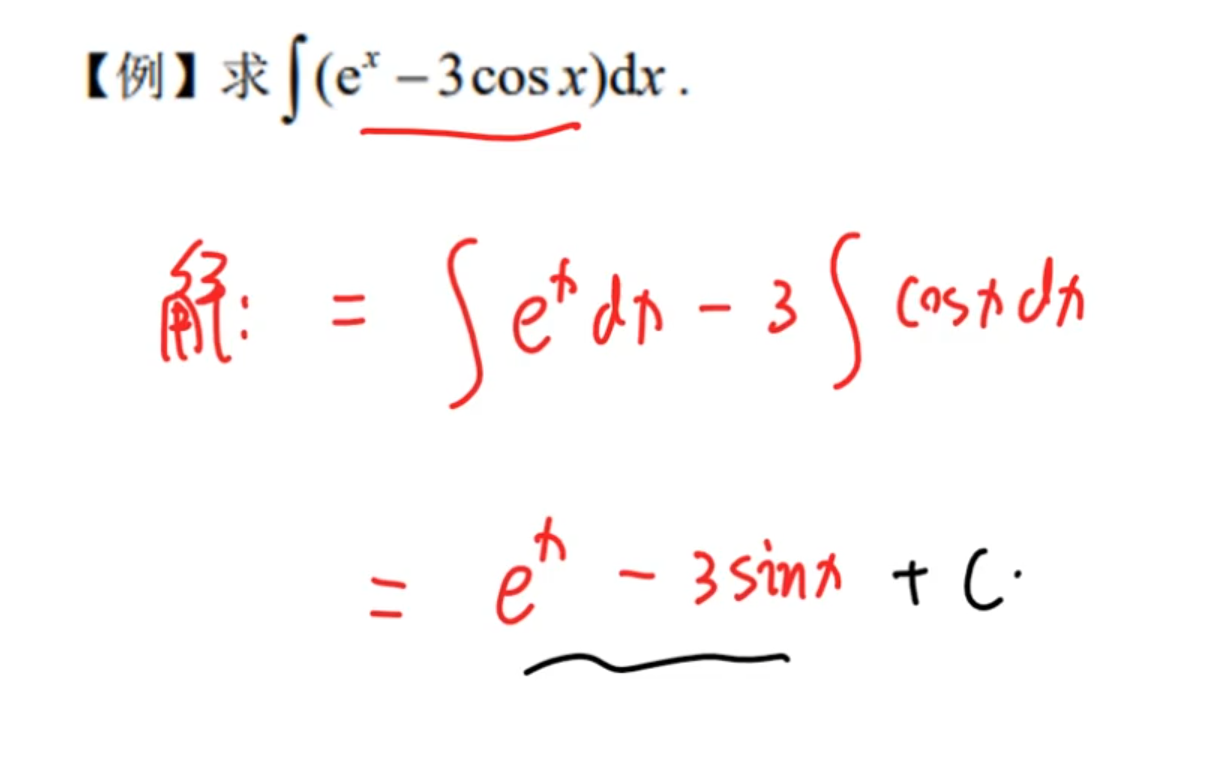 【例】求∫(eˣ − 3cos x)dx .
解: = ∫ eˣ dx - 3 ∫ cosx dx
= eˣ - 3 sinx + C.